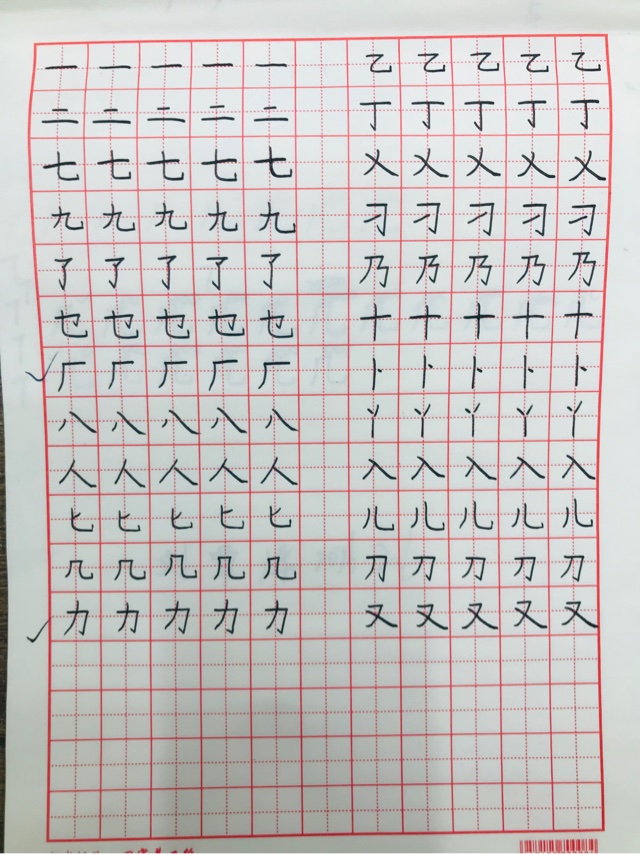 一 一 一 一 一 乙 乙 乙 乙 乙
二 二 二 二 二 丁 丁 丁 丁 丁
七 七 七 七 七 乂 乂 乂 乂 乂
九 九 九 九 九 刁 刁 刁 刁 刁
了 了 了 了 了 乃 乃 乃 乃 乃
乜 乜 乜 乜 乜 十 十 十 十 十
厂 厂 厂 厂 厂 卜 卜 卜 卜 卜
八 八 八 八 八 丫 丫 丫 丫 丫
人 人 人 人 人 入 入 入 入 入
匕 匕 匕 匕 匕 儿 儿 儿 儿 儿
几 几 几 几 几 刀 刀 刀 刀 刀
力 力 力 力 力 又 又 又 又 又